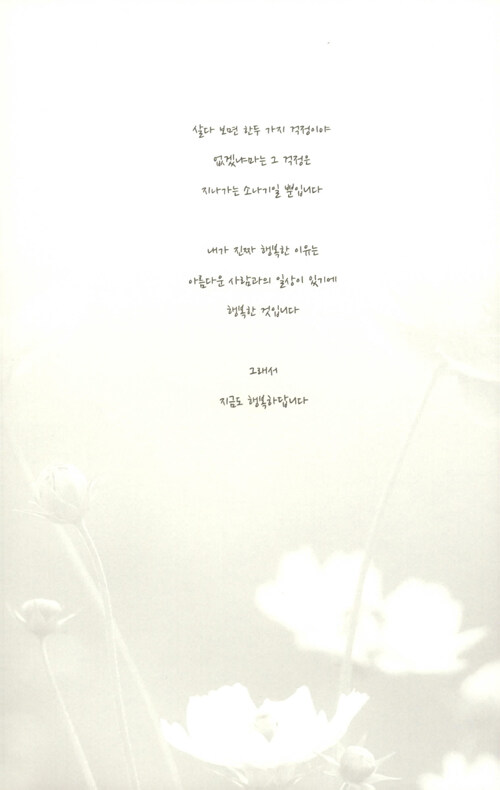 살다 보면 한두 가지 걱정이야
없겠냐마는 그 걱정은
지나가는 소나기일 뿐입니다
내가 진짜 행복한 이유는
아름다운 사람과의 일상이 있기에
행복한 것입니다
그래서
지금도 행복하답니다